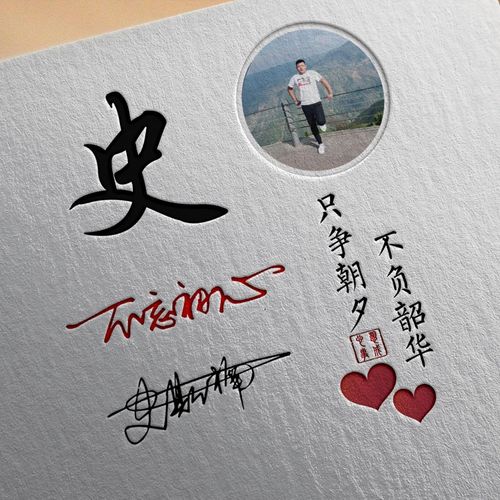 史
不忘初心
只争朝夕
不负韶华